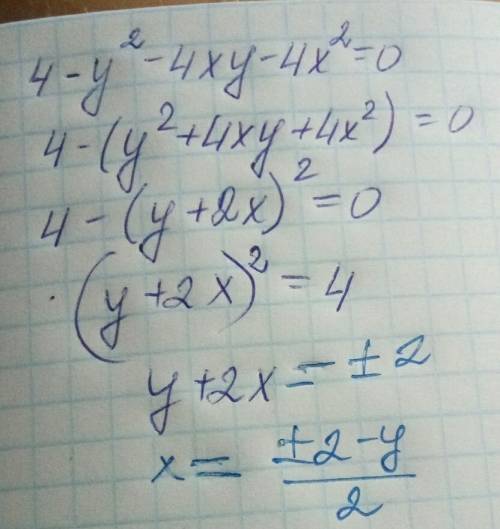 4-y²-4xy-4x²=0
4-(y²+4xy+4x²)=0
4-(y+2x)²=0
(y+2x)²=4
y+2x=±2
x=(±2-y)/2